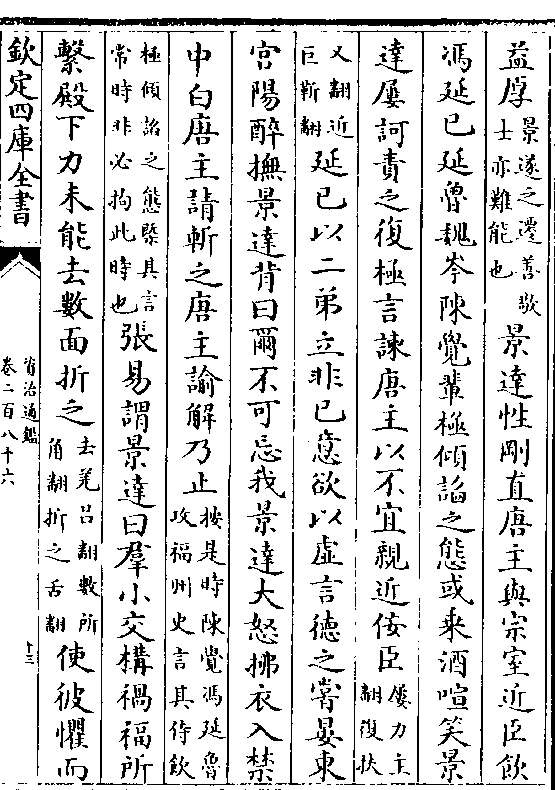 益厚景遂之遷善敬士亦難能也景達性剛直唐主與宗室近臣飲
馮延巳延魯魏岑陳覺輩極傾諂之態或乗酒喧笑景
達屢訶責之復極言諫唐主以不宜親近佞臣屢力主翻復扶
又翻近巨靳翻延巳以二弟立非已意欲以虚言德之嘗宴東
宫陽醉撫景達背曰爾不可忘我景達大怒拂衣入禁
中白唐主請斬之唐主諭解乃止按是時陳覺馮延魯攻福州史言其侍飲
極傾諂之態槩其言常時非必拘此時也張易謂景達曰羣小交構禍福所
繫殿下力未能去數面折之去羌吕翻數所角翻折之舌翻使彼懼而
欽定四庫全書
資治通鑑
卷二百八十六
十三